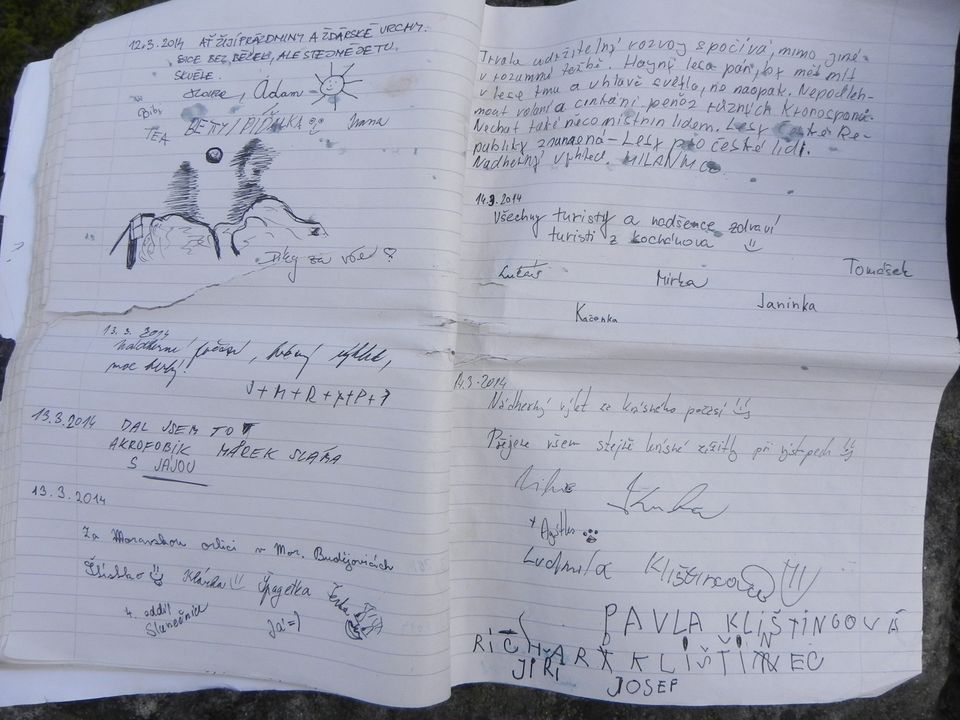 12.3.2014 AŤ ŽIJÍ PRÁZDNINY A ŽĎÁRSKÉ VRCHY.
SICE BEZ BĚŽEK, ALE STEJNĚ JE TU
SKVĚLE.
Adam
Bibi
TEA BETY Ivana
Díky za vše
13.3.2014
nádherné počasí, výhled,
moc hezký!
J+M+R+
13.3.2014 DAL JSEM TO
AKROFOBIK MAREK SLÁMA
S JÁJOU
13.3.2014
Za Moravskou orlici v Mor. Budějovicích
Klárka Špagetka
4. oddíl
Já =)
Trvale udržitelný rozvoj spočívá, mimo jiné
v rozumné těžbě. Hajný lesa pán, by měl mít
v lese tmu a v hlavě světlo, ne naopak. Nepodleh-
nout volání a cinkání peněz různých Kronospanů.
Nechat také něco místním lidem. Lesy České Re-
publiky znamená - Lesy pro české lidi.
Nádherný výhled. MILAN
14.3.2014
Všechny turisty a nadšence zdraví
turisti z Kochánova
Lukáš Mirka Tomášek
Kačenka Janinka
14.3.2014
Nádherný výlet za krásného počasí
Přejeme všem stejně krásné zážitky při výstupech
Ludmila
PAVLA KLIŠTINCOVÁ
RICHARD KLIŠTINEC
JIŘÍ JOSEF